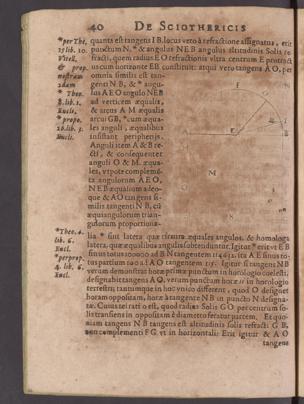 40 DE SCIOTHERICIS
*per Thē.
15 lib. 10.
Vitell.
& prop.
nostram
2dam
* Theo.
8. lib. 1.
Eucle.
* propo.
26. lib. 3.
Eucli.
quanta est tangens I B. lucus vero à refractione assignatus, erit
punctum N. * & angulus N E B angulus altitudinis Solis re-
fracti, quem radius E O refractionis ultra centrum E protract
us cum horizonte E B constituit: atqui vero tangens A O, per
omnia similis est tan-
genti N B, & * angu-
lus A E O angulo N E B
ad verticem æqualis,
& arcus A M æqualis
arcui G B, * cum æqua-
les anguli, æqualibus
insistant peripheriis.
Anguli item A & B re-
cti, & consequenter
anguli O & M. æqua-
les, utpote complemē-
ta angulorum A E O,
N E B æqualium adeo-
que & A O tangens si-
milis tangenti N B, cū
æquiangulorum trian-
gulorum proportiona-
*Theo. 4.
lib. 6.
Eucl.
*per prop.
4. lib. 6.
Eucl.
lia * sint latera quæ circum æquales angulos, & homologa
latera, quæ æqualibus angulis subtenduntur. Igitur * erit vt E B
sinus totus
tus partium 100 ad A O tangentem Igitur si tangens N B
verum demonstrat horæ primæ punctum in horologio cœlesti,
designabit tangens A O, verum punctum horæ in horologio
terrestri; tantumque in hoc vnico different, quod O designet
horam oppositam, horæ à tangente N B in puncto N designa-
tæ. Cuius rei ratio est, quod radius Solis G O per centrum so-
lis transiens in oppositam è diametro feratur partem. Et quo-
niam tangens N B tangens est altitudinis solis refracti G B,
seu complementi F G vt in horizontali: Erit igitur & A O
tangens
A E B
I
O
G
M
N